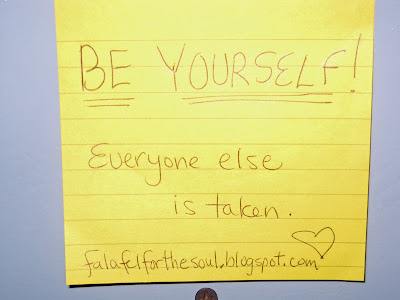 BE YOURSELF!
Everyone else
is taken.
falafelforthesoul.blogspot.com